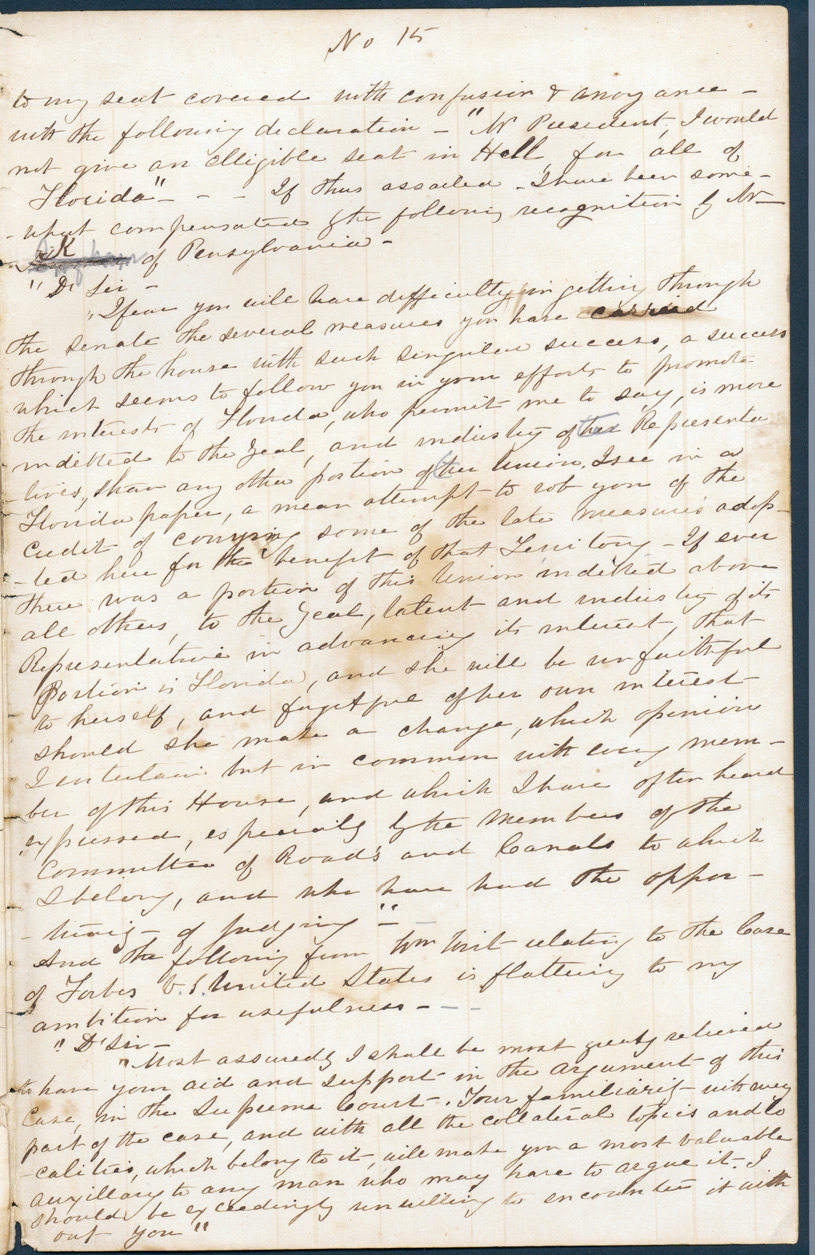 No 15
to my seat covered with confusion & anoyance -
with the following declaration - "Mr President, I would
not give an elligible seat in Hell, for all of
Florida" - - - If thus assailed - I have been some-
-what compensated by the following recognition by Mr
K of Pensylvania -
"Dr Sir -
"I fear you will have difficulty in getting through
the senate the several measures you have carried
through the house with such singular success, a success
which seems to follow you in your efforts to promote
the interests of Florida, who permit me to say, is more
indetted to the Zeal, and industry of her Representa
-tives, than any other portion of the Union. I see in a
Florida paper, a mean attempt to rob you of the
credit of carrying some of the late measures adop-
-ted here for the benefit of that Territory - If ever
there was a portion of this Union indetted above
all others, to the Zeal, latent and industry of its
Representative in advancing its interest, that
Portion is Florida, and she will be unfaithful
to herself, and forgetful of her own interest
should she make a change, which opinion
I entertain but in common with every mem-
ber of this House, and which I have often heard
expressed, especially by the Members of the
Committee of Roads and Canals to which
I belong, and who have had the oppor-
-tunity - of judging" -
And the following from Wm Wirt relating to the Case
of Forbes V.S. United States is flattering to my
ambition for usefulness - - -
"Dr Sir -
"Most assuredly I shall be most greatly relieved
to have your aid and support in the argument of this
Case, in the Supreme Court. Your familiarity with every
part of the case, and with all the collateral topics and lo
-calities, which belong to it, will make you a most valuable
auxillary to any man who may have to argue it. I
should be exceedingly unwilling to encounter it with
out you"